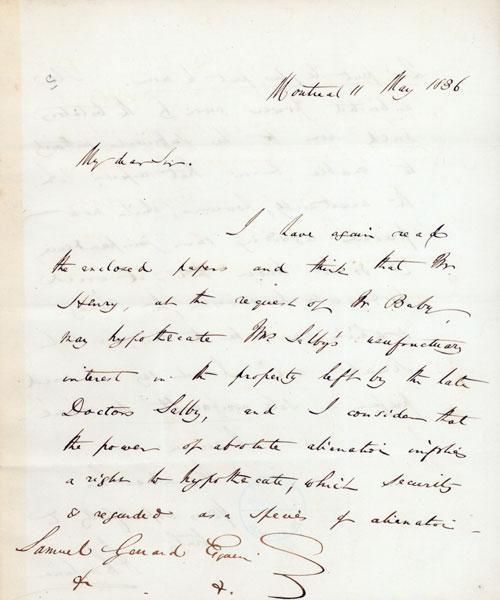 Montreal 11 May 1836
My dear Sir.
I have again read
the enclosed papers and think that Mr
Henry, at the request of Mr Baby
may hypothecate Mrs Selby's usufructuary
interest in the property left by the late
Doctors Selby, and I consider that
the power of absolute alienation implies
a right to hypothecate, which security
is regarded as a species of alienation –
Samuel Gerrard Esquire
&c &.